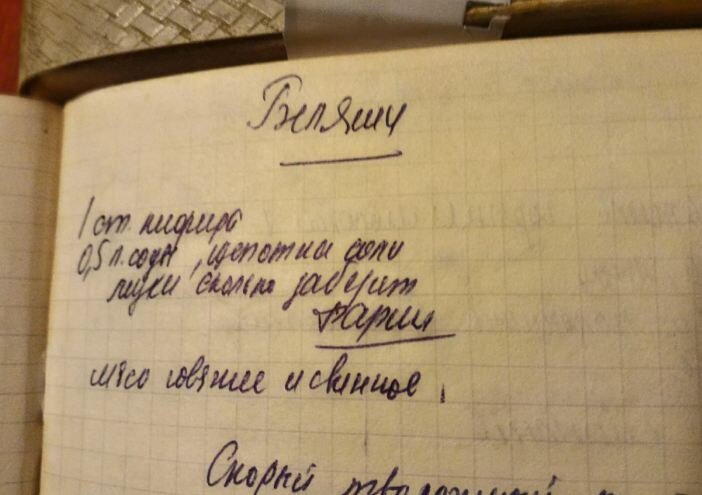 Беляши
1 ст. кефира
0,5 л. соды, щепотка соли
муки сколько заберёт
Фарш
мясо говяжее и свинное,
Скорый творожный